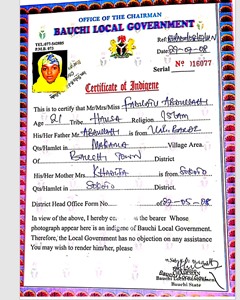 OFFICE OF THE CHAIRMAN
BAUCHI LOCAL GOVERNMENT
P.M.B.
Ref:
Date
Serial No 016077
Certificate of Indigene
This is to certify that Mr/Mrs/Miss
Age 21 Tribe HAUSA Religion Islam
His/Her Father Mr ABDULLAHI is from
Qts/Hamlet in MAKAMA Village Area
Of BAUCHI TOWN District.
His/Her Mother Mrs KHADIJA is from SOKOTO
Qts/Hamlet in SOKOTO District.
District Head Office Form No of 22-05-08
In view of the above, I hereby the bearer Whose
photograph appear here is an indigene of Bauchi Local Government.
Therefore, the Local Government has no objection on any assistance
You may wish to render him/her, please
Bauchi State